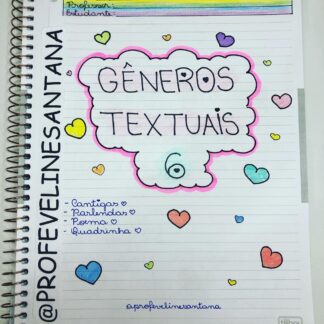 Professor:
Estudante:
GÊNEROS
TEXTUAIS
6
- Cantigas ♡
- Parlendas ♡
- Poema ♡
- Quadrinha ♡
@profevelinesantana
@PROFEVELINESANTANA
tilibra